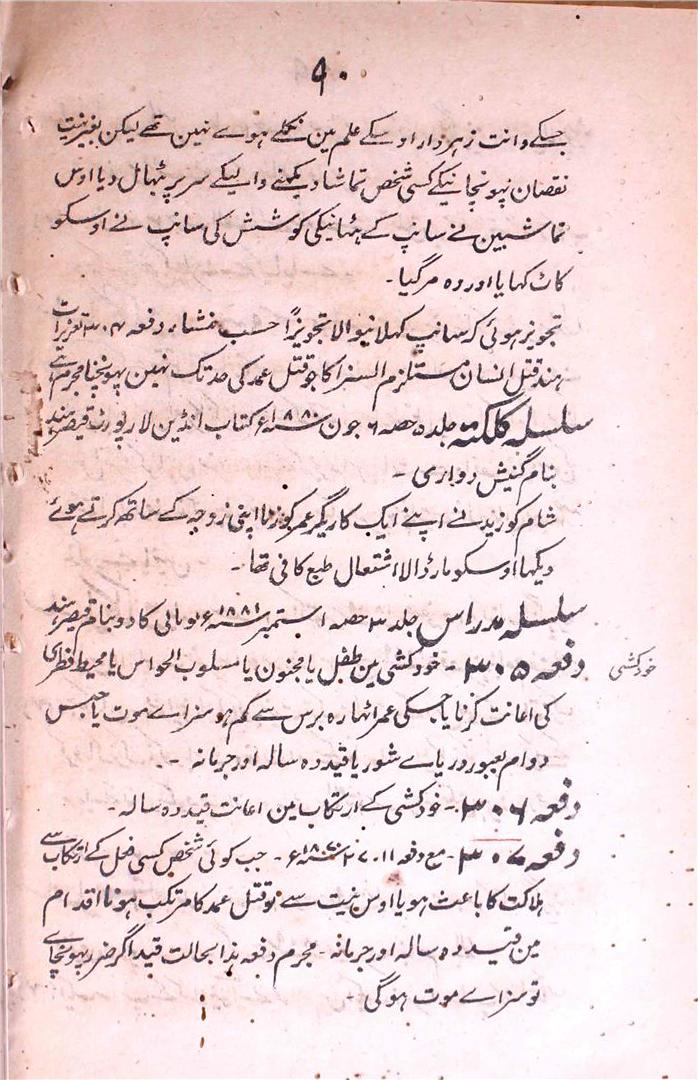 ۹۰
جسکے دانت زہردار اوسکے علم مین نکلے ہوے نہین تھے لیکن بغیر نیت
نقصان پہونچانیکے کسی شخص تماشا دیکھنے والیکے سر پر بٹہال دیا اوس
تماشبین نے سانپ کے ہٹانیکی کوشش کی سانپ نے اوسکو
کاٹ کہایا اور وہ مرگیا۔
تجویز ہوئی کہ سانپ کہلانیوالا تجویزًا حسب منشاء دفعہ ۳۰۴ تعزیرات
ہند قتل انسان مستلزم السزا کا جو قتل عمد کی حد تک نہین پہونچتا مجرم ہے
سلسلہ کلکتہ جلد ۵ حصہ ۶ جون سنہ ۱۸۸۰ء کتاب انڈین لا رپورٹ قیصر ہند
بنام گنیش دواری ۔
شام کو زید نے اپنے ایک کاریگر عمر کو زنا اپنی زوجہ کے ساتھ کرتے ہوئے
دیکھا اوسکو مارڈالا اشتعال طبع کافی تھا ۔
سلسلہ مدراس جلد ۳ حصہ ۱ ستمبر سنہ ۱۸۸۱ء بویائی کادو بنام قیصر ہند
دفعہ ۳۰۵ ۔ خودکشی مین طفل یا مجنون یا مسلوب الحواس یا محیط فطری
خودکشی
کی اعانت کرنا یا جسکی عمر اٹھارہ برس سے کم ہو سزاے موت یا حبس
دوام بعبور دریاے شور یا قید دہ سالہ اور جرمانہ ۔
دفعہ ۳۰۶ ۔ خودکشی کے ارتکاب مین اعانت قید دہ سالہ ۔
دفعہ ۳۰۷ ۔ مع دفعہ ۱۱ ۔ ۲۷ سنہ ۱۸۷۰ء ۔ جب کوئی شخص کسی فعل کے ارتکاب سے
ہلاکت کا باعث ہو یا اوس نیت سے تو قتل عمد کا مرتکب ہوتا اقدام
مین قید دہ سالہ اور جرمانہ ۔ مجرم دفعہ ہذا بحالت قید اگر ضرر پہونچاے
تو سزاے موت ہوگی ۔